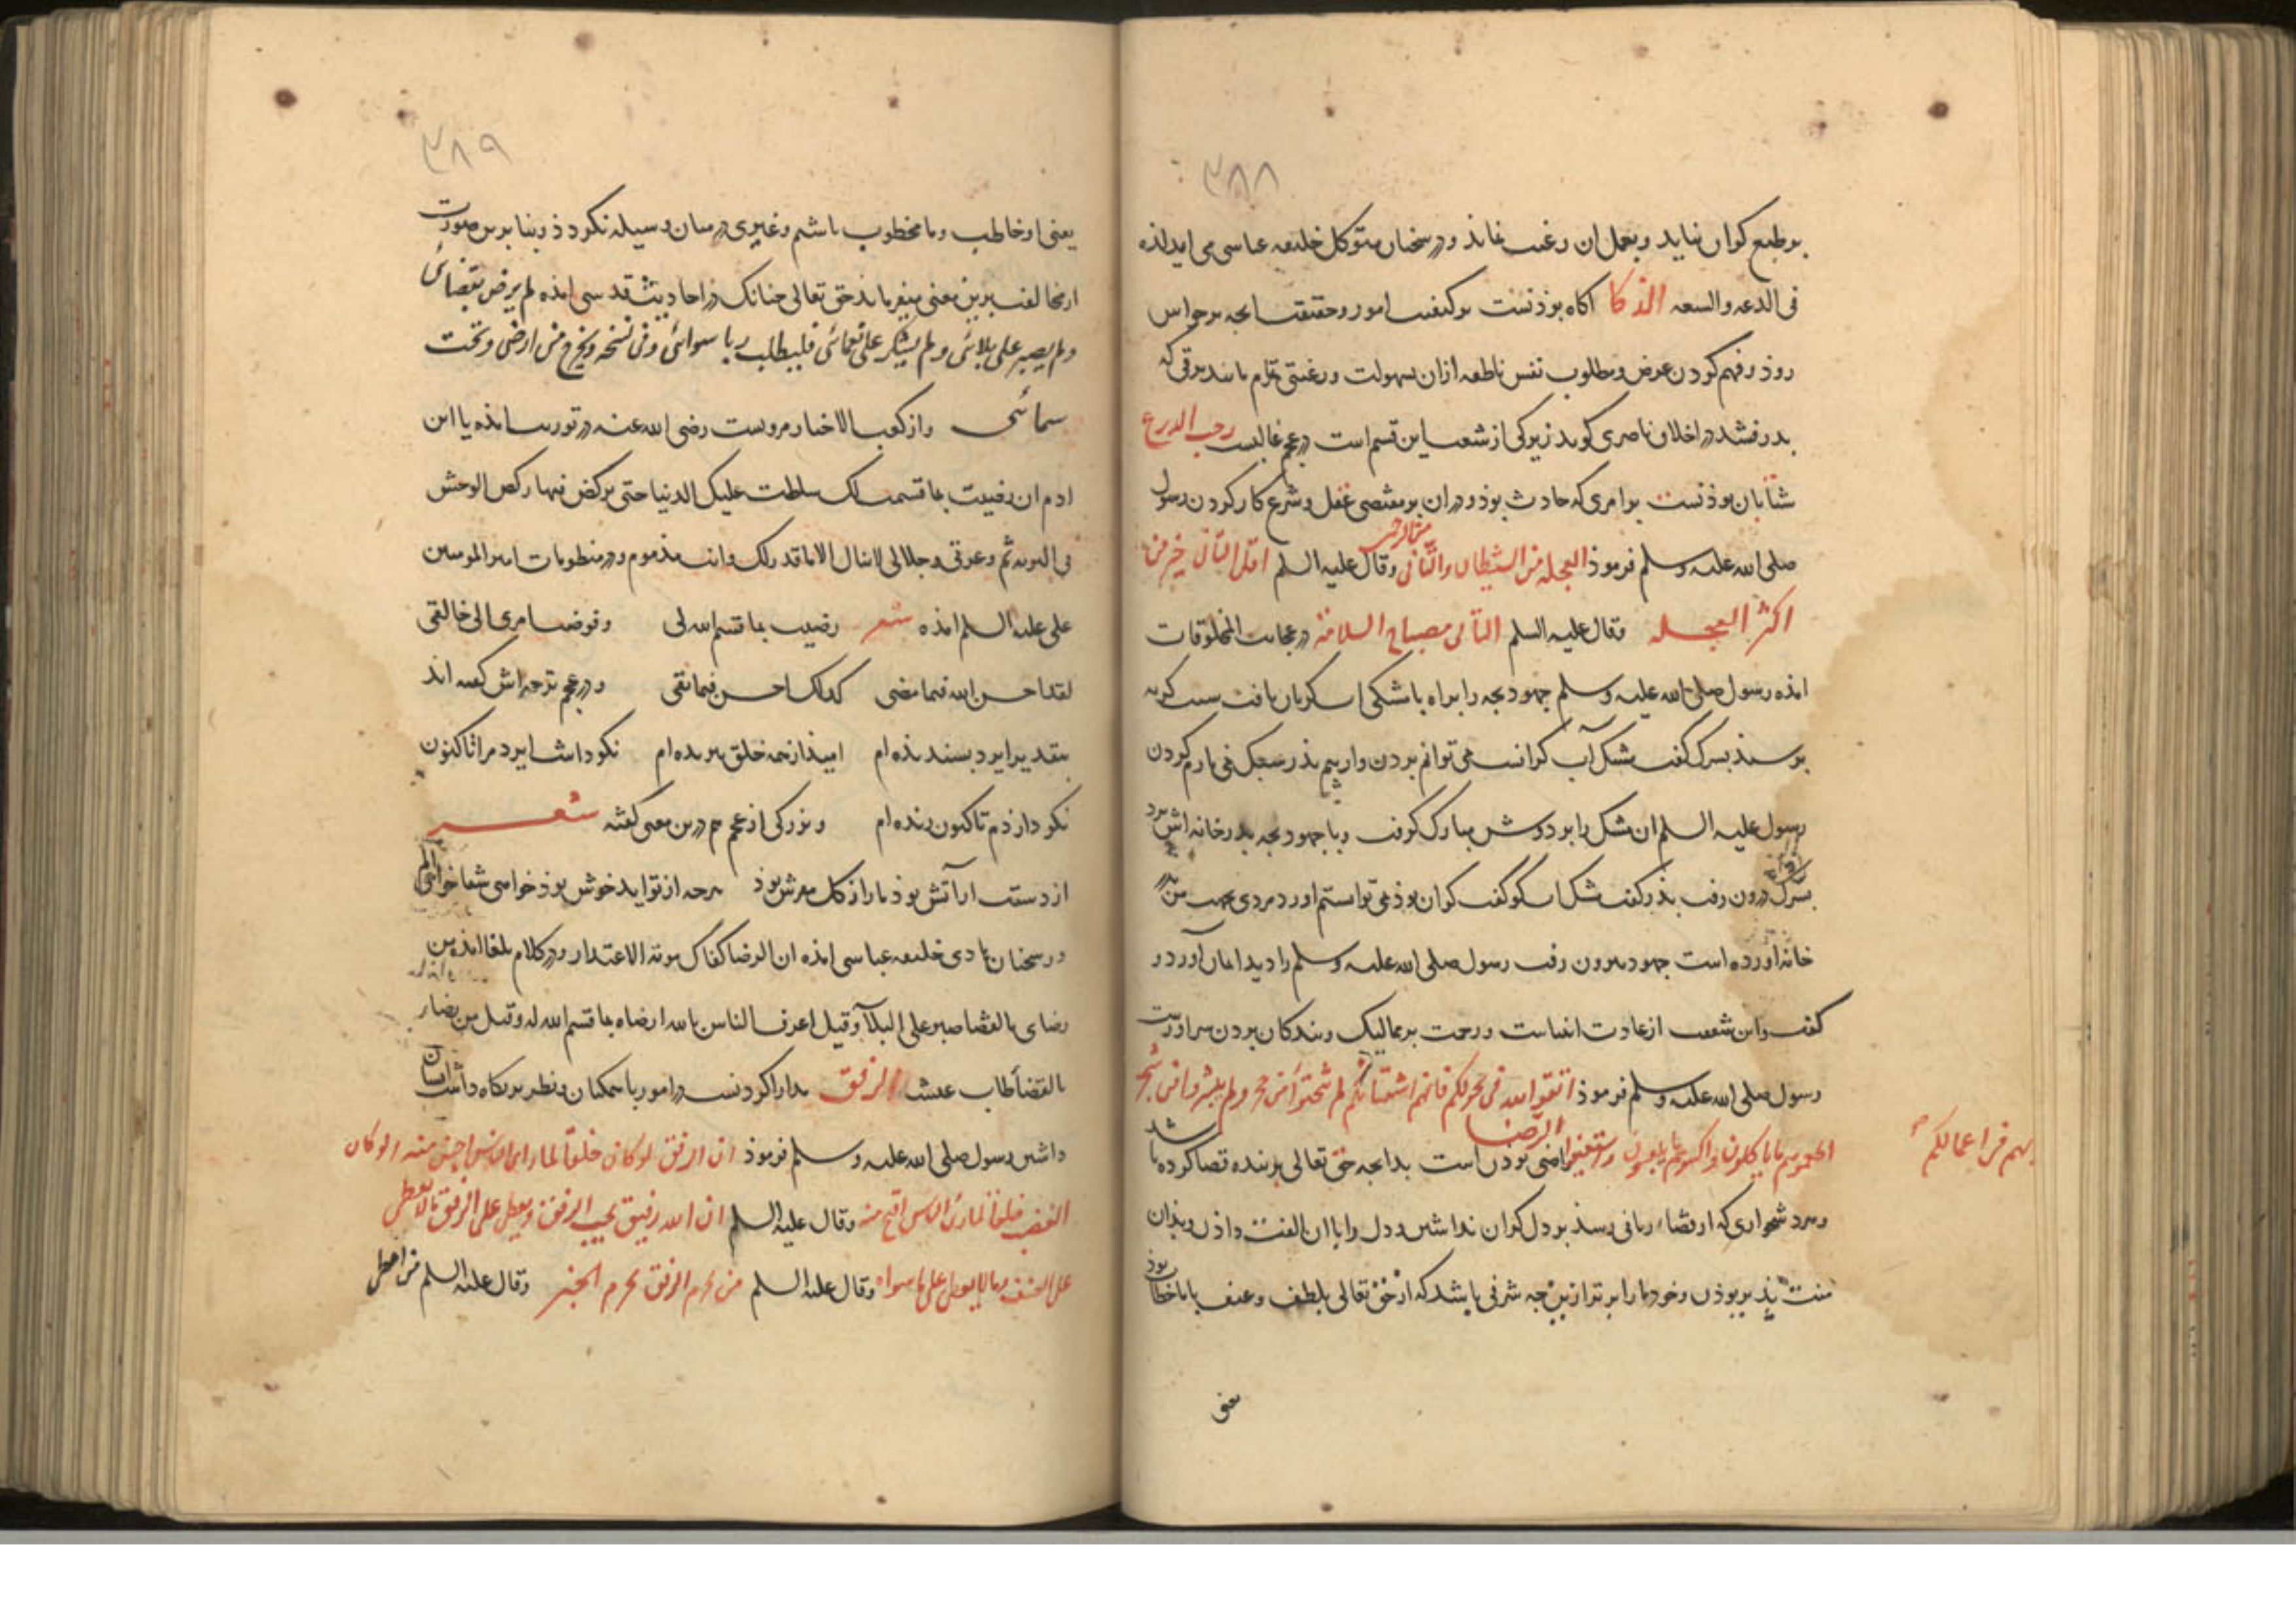 ۳۸۸
بر طبع کران نیاید و بعمل ان رغبت نماند و در سخنان متوکل خلیفه عباسی می اید لذه
فی الدعه والسعه الذکا آکاه بوذنست بر کیفیت امور و حقیقت انجه بر حواس
روذ و فهم کردن غرض و مطلوب نفس ناطقه ازان بسهولت و رغبتی تمام مانند برقی که
بدرفشد در اخلاق ناصری کوید زیرکی از شعب این قسم است در عجم غالبست رحب الذرع
شتابان بوذنست بر امری که حادث بوذ و در ان بر مقتضی عقل و شرع کار کردن رسول
صلی الله علیه وسلم فرموذ العجله من الشیطان والتأنی من الرحمن وقال علیه السلم اقل التأنی خیر من
اکثر العجله وقال علیه السلم التأنی مصباح السلامة در عجایب المخلوقات
امذه رسول صلی الله علیه وسلم جهود بجه را براه با مشکی اب کریان یافت سبب کریه
برسیذ بسرک کفت مشک آب کرانست نمی توانم بردن و از بیم بذر سبک نمی یارم کردن
رسول علیه السلم ان مشک را بر دوش مبارک کرفت و با جهود بجه بدر خانه اش برد
بسرک درون رفت بذر کفت مشک اب کو کفت کران بوذ نمی توانستم اورد مردی بجهت من بدر
خانه آورده است جهود بیرون رفت رسول صلی الله علیه وسلم را دید ایمان آورد و
کفت این شفقت از عادت انبیاست و رحمت بر ممالیک و بندکان بردن سزاورست
رسول صلی الله علیه وسلم فرموذ اتقوا الله فی خولکم فانهم اشقائکم لم ینحتوا من حجر ولم ینشروا من شجر
اطعموهم مما یاکلون واکسوهم مما یلبسون واستعینوا
بهم فی اعمالکم
الرضا راضی بودن است بدانجه حق تعالی بر بنده قضا کرده باشد
و هر دشواری که از قضاء ربانی رسذ بر دل کران نداشتن و دل را با ان الفت داذن و بذان
منت بذیر بوذن و خود ما را برتر ازین جه شرفی باشد که از حق تعالی بلطف و عنف با ما خطاب بوذ
یعنی
۳۸۹
یعنی او خاطب و ما مخطوب باشم و غیری در میان وسیله نکردذ و بنا برین صورت
از مخالفت برین معنی میفرماید حق تعالی جنانک در احادیث قدسی امذه لم یرض بقضائی
ولم یصبر علی بلائی ولم یشکر علی نعمائی فلیطلب ربا سوائی وفی نسخه ویخرج من ارضی وتحت
سمائی و از کعب الاخبار مرویست رضی الله عنه در توریت امذه یا ابن
ادم ان رضیت بما قسمت لک سلطت علیک الدنیا حتی ترکض فیها رکض الوحش
فی البریه ثم وعزتی وجلالی لا تنال الا ما قدر لک وانت مذموم و در منظومات امیر المومنین
علی علیه السلم امذه شعر رضیت بما قسم الله لی وفوضت امری الی خالقی
لقد احسن الله فیما مضی کذلک احسن فیما بقی و در عجم ترجمه اش کفته اند
بتقدیر ایزد بسندیذه ام امیذ از همه خلق ببریده ام نکو داشت ایزد مرا تاکنون
نکو دارذم تا کنون زنده ام و بزرکی از عجم هم درین معنی کفته شعر
از دست ار آتش بوذ ما را ز کل مفرش بوذ هرجه از تو اید خوش بوذ خواهی شفا خواهی الم
در سخنان هادی خلیفه عباسی امذه ان الرضا کفاک مونة الاعتذار و در کلام بلغا امذه من
رضای بالقضا صبر علی البلآ وقیل اعرف الناس بالله ارضاه بما قسم الله له وقیل من رضا
بالقضا طاب عیشه الرفق مدارا کردنست در امور با همکنان و نظر بر نکاه داشت ایشان
داشتن رسول صلی الله علیه وسلم فرموذ ان الرفق لو کان خلقا لما رای الناس احسن منه ولو کان
العنف خلقا لما رای الناس اقبح منه وقال علیه السلم ان الله رفیق یحب الرفق ویعطی علی الرفق ما لا یعطی
علی العنف وما لا یعطی علی ما سواه وقال علیه السلم من یحرم الرفق یحرم الخیر وقال علیه السلم من اعطی